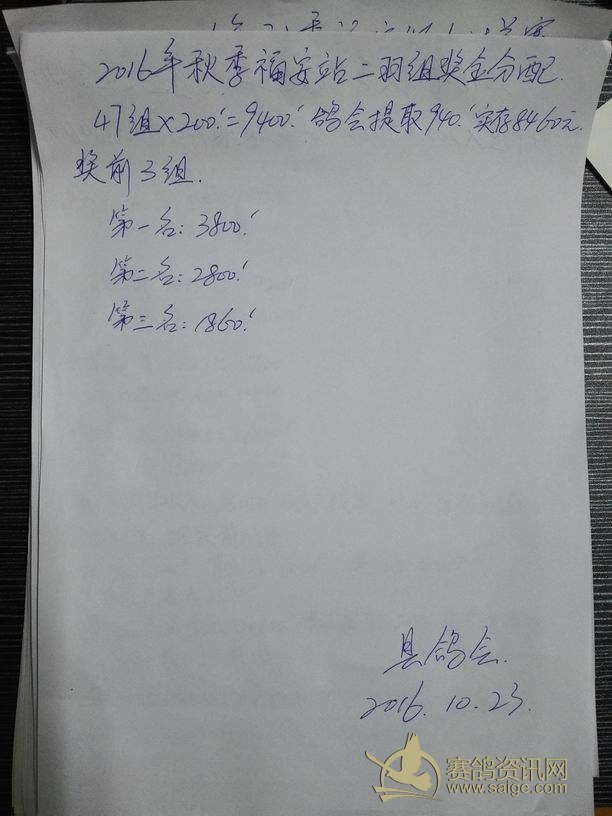 2016年秋季福安站二羽组奖金分配.
47组×200.'=9400.' 鸽会提取940.' 实存8460元.
奖前3组.
第一名:3800.'
第二名:2800.'
第三名:1860.'
县鸽会.
2016.10.23.
赛鸽资讯网
www.saige.com